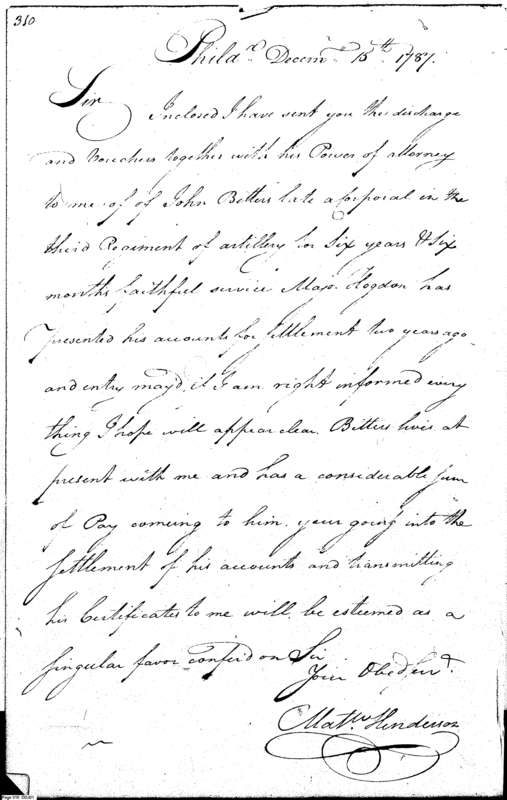 310
Philad.ª Decem.br 15th 1787.
Sir
Inclosed I have sent you the discharge
and Vouchers together with his Power of attorney
to me of of John Bitters late a Corporal in the
third Regiment of artillery for Six years & Six
months faithful service Majr. Hogdon has
presented his accounts for settlement two years ago
and entry mayd, if I am right informed every
thing I hope will appear clear. Bitters lives at
present with me and has a considerable sum
of Pay comeing to him. your going into the
settlement of his accounts and transmitting
his Certificates to me will be esteemed as a
singular favor confer'd on Sir
Your Obed. Serv.t
Mat.w Henderson